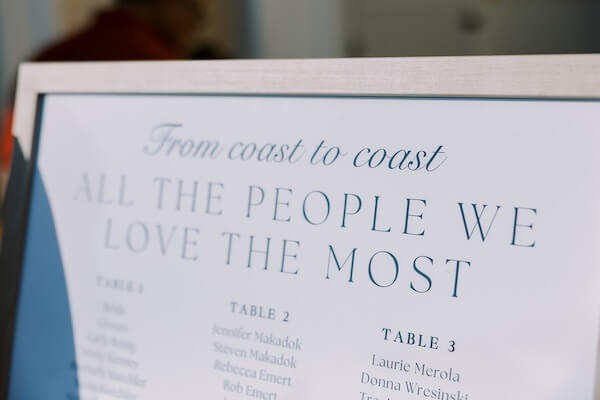 From coast to coast
ALL THE PEOPLE WE
LOVE THE MOST
TABLE 1
Bride
Groom
TABLE 2
Jennifer Makadok
Steven Makadok
Rebecca Emert
Rob Emert
TABLE 3
Laurie Merola
Donna Wresinski